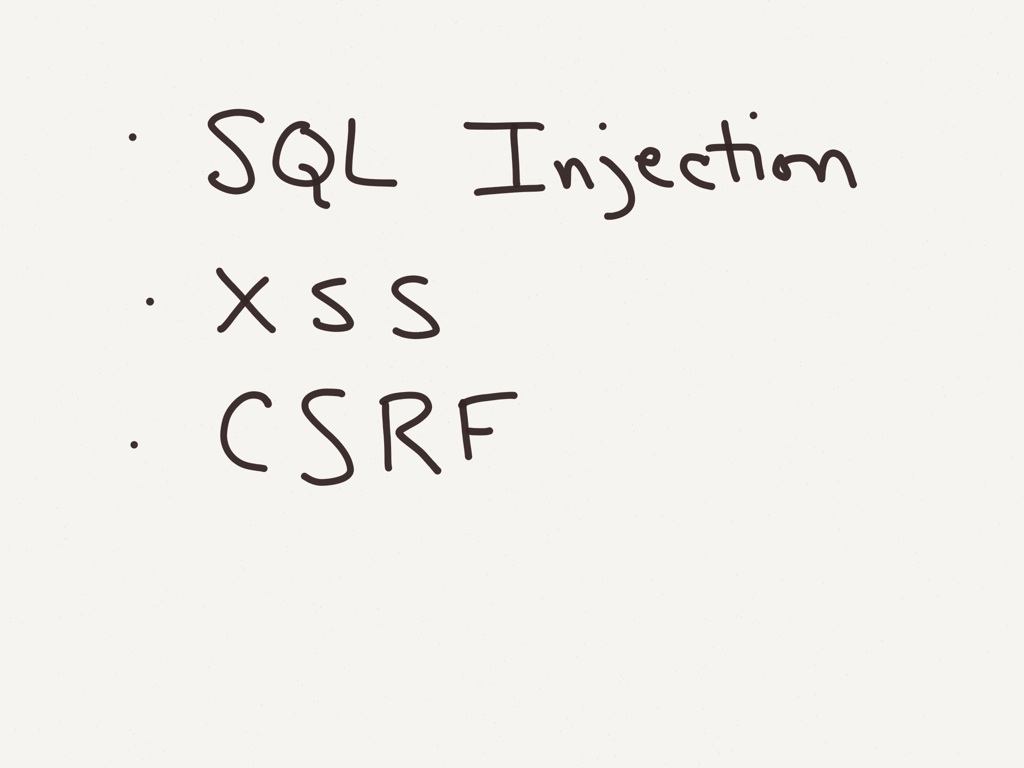 · SQL Injection
· XSS
· CSRF